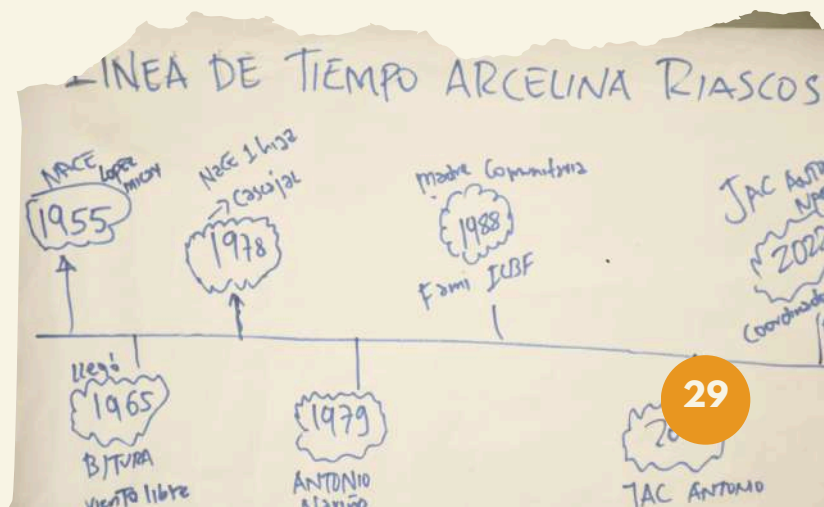 LINEA DE TIEMPO ARCELINA RIASCOS
NACE LOPEZ
MICAY
1955
NACE 1 hija
Cascajal
1978
Madre Comunitaria
1988
Fami ICBF
JAC
2022
llegó
1965
B/TURA
viento libre
1979
ANTONIO
Nariño
29
JAC ANTONIO